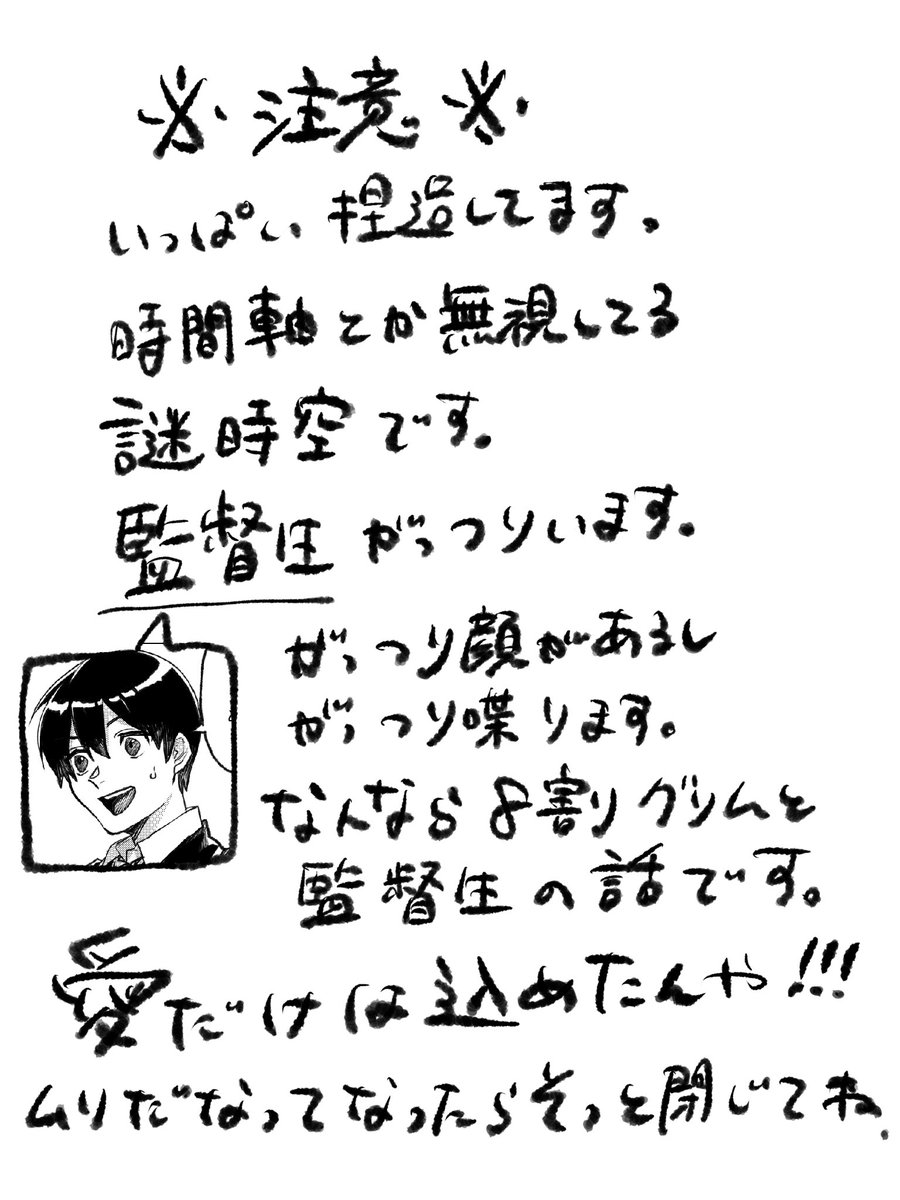 ※注意※
いっぱい捏造してます。
時間軸とか無視してる
謎時空です。
監督生がっつりいます。
がっつり顔があるし
がっつり喋ります。
なんなら8割りグリムと
監督生の話です。
愛だけは込めたんや!!!
ムリだなってなったらそっと閉じてね.